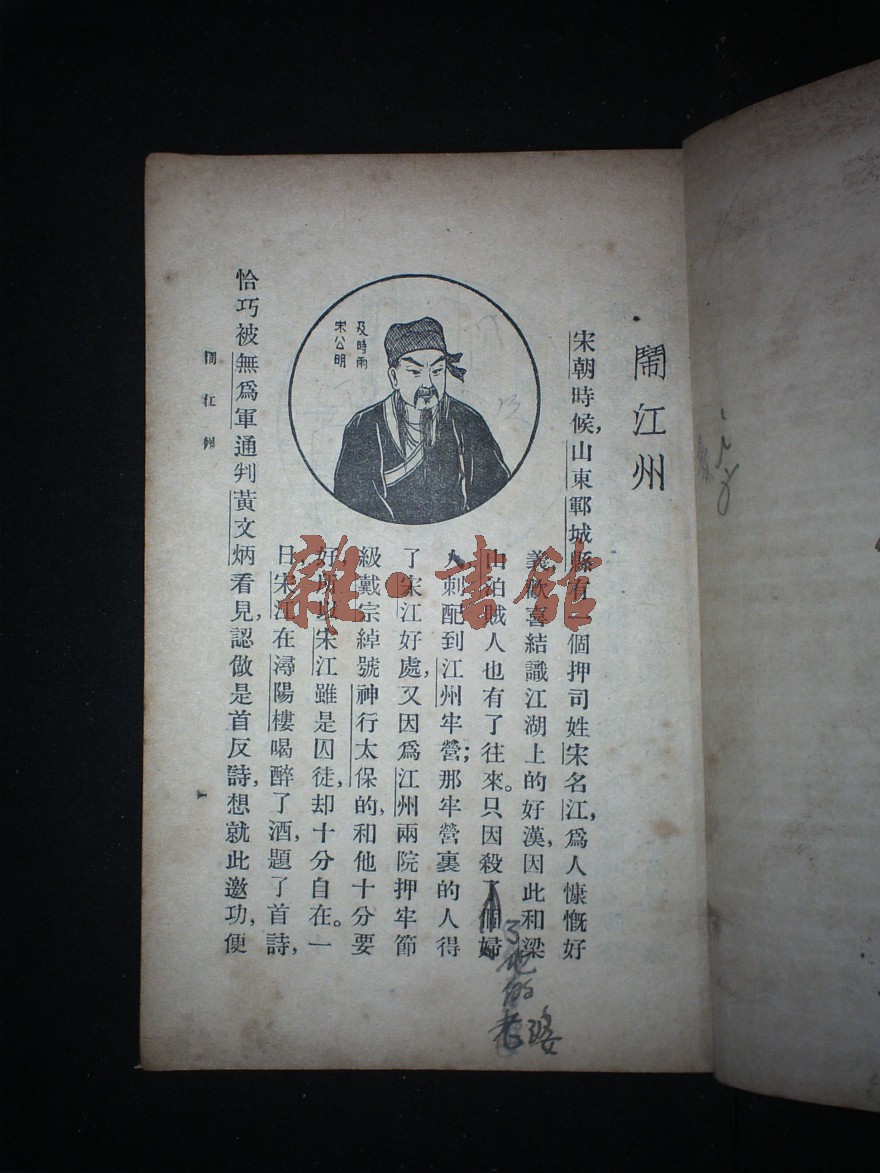 鬧江州
宋朝時候,山東鄆城縣有一個押司姓宋名江,爲人慷慨好
義,歡喜結識江湖上的好漢,因此和梁
山泊賊人也有了往來。只因殺了個婦
人,刺配到江州牢營;那牢營裏的人得
了宋江好處,又因爲江州兩院押牢節
級戴宗綽號神行太保的,和他十分要
好,所以宋江雖是囚徒,却十分自在。一
日,宋江在潯陽樓喝醉了酒,題了首詩,
恰巧被無爲軍通判黃文炳看見,認做是首反詩,想就此邀功,便
及時雨
宋公明
鬧江州
了他的
老婆
雜·書館